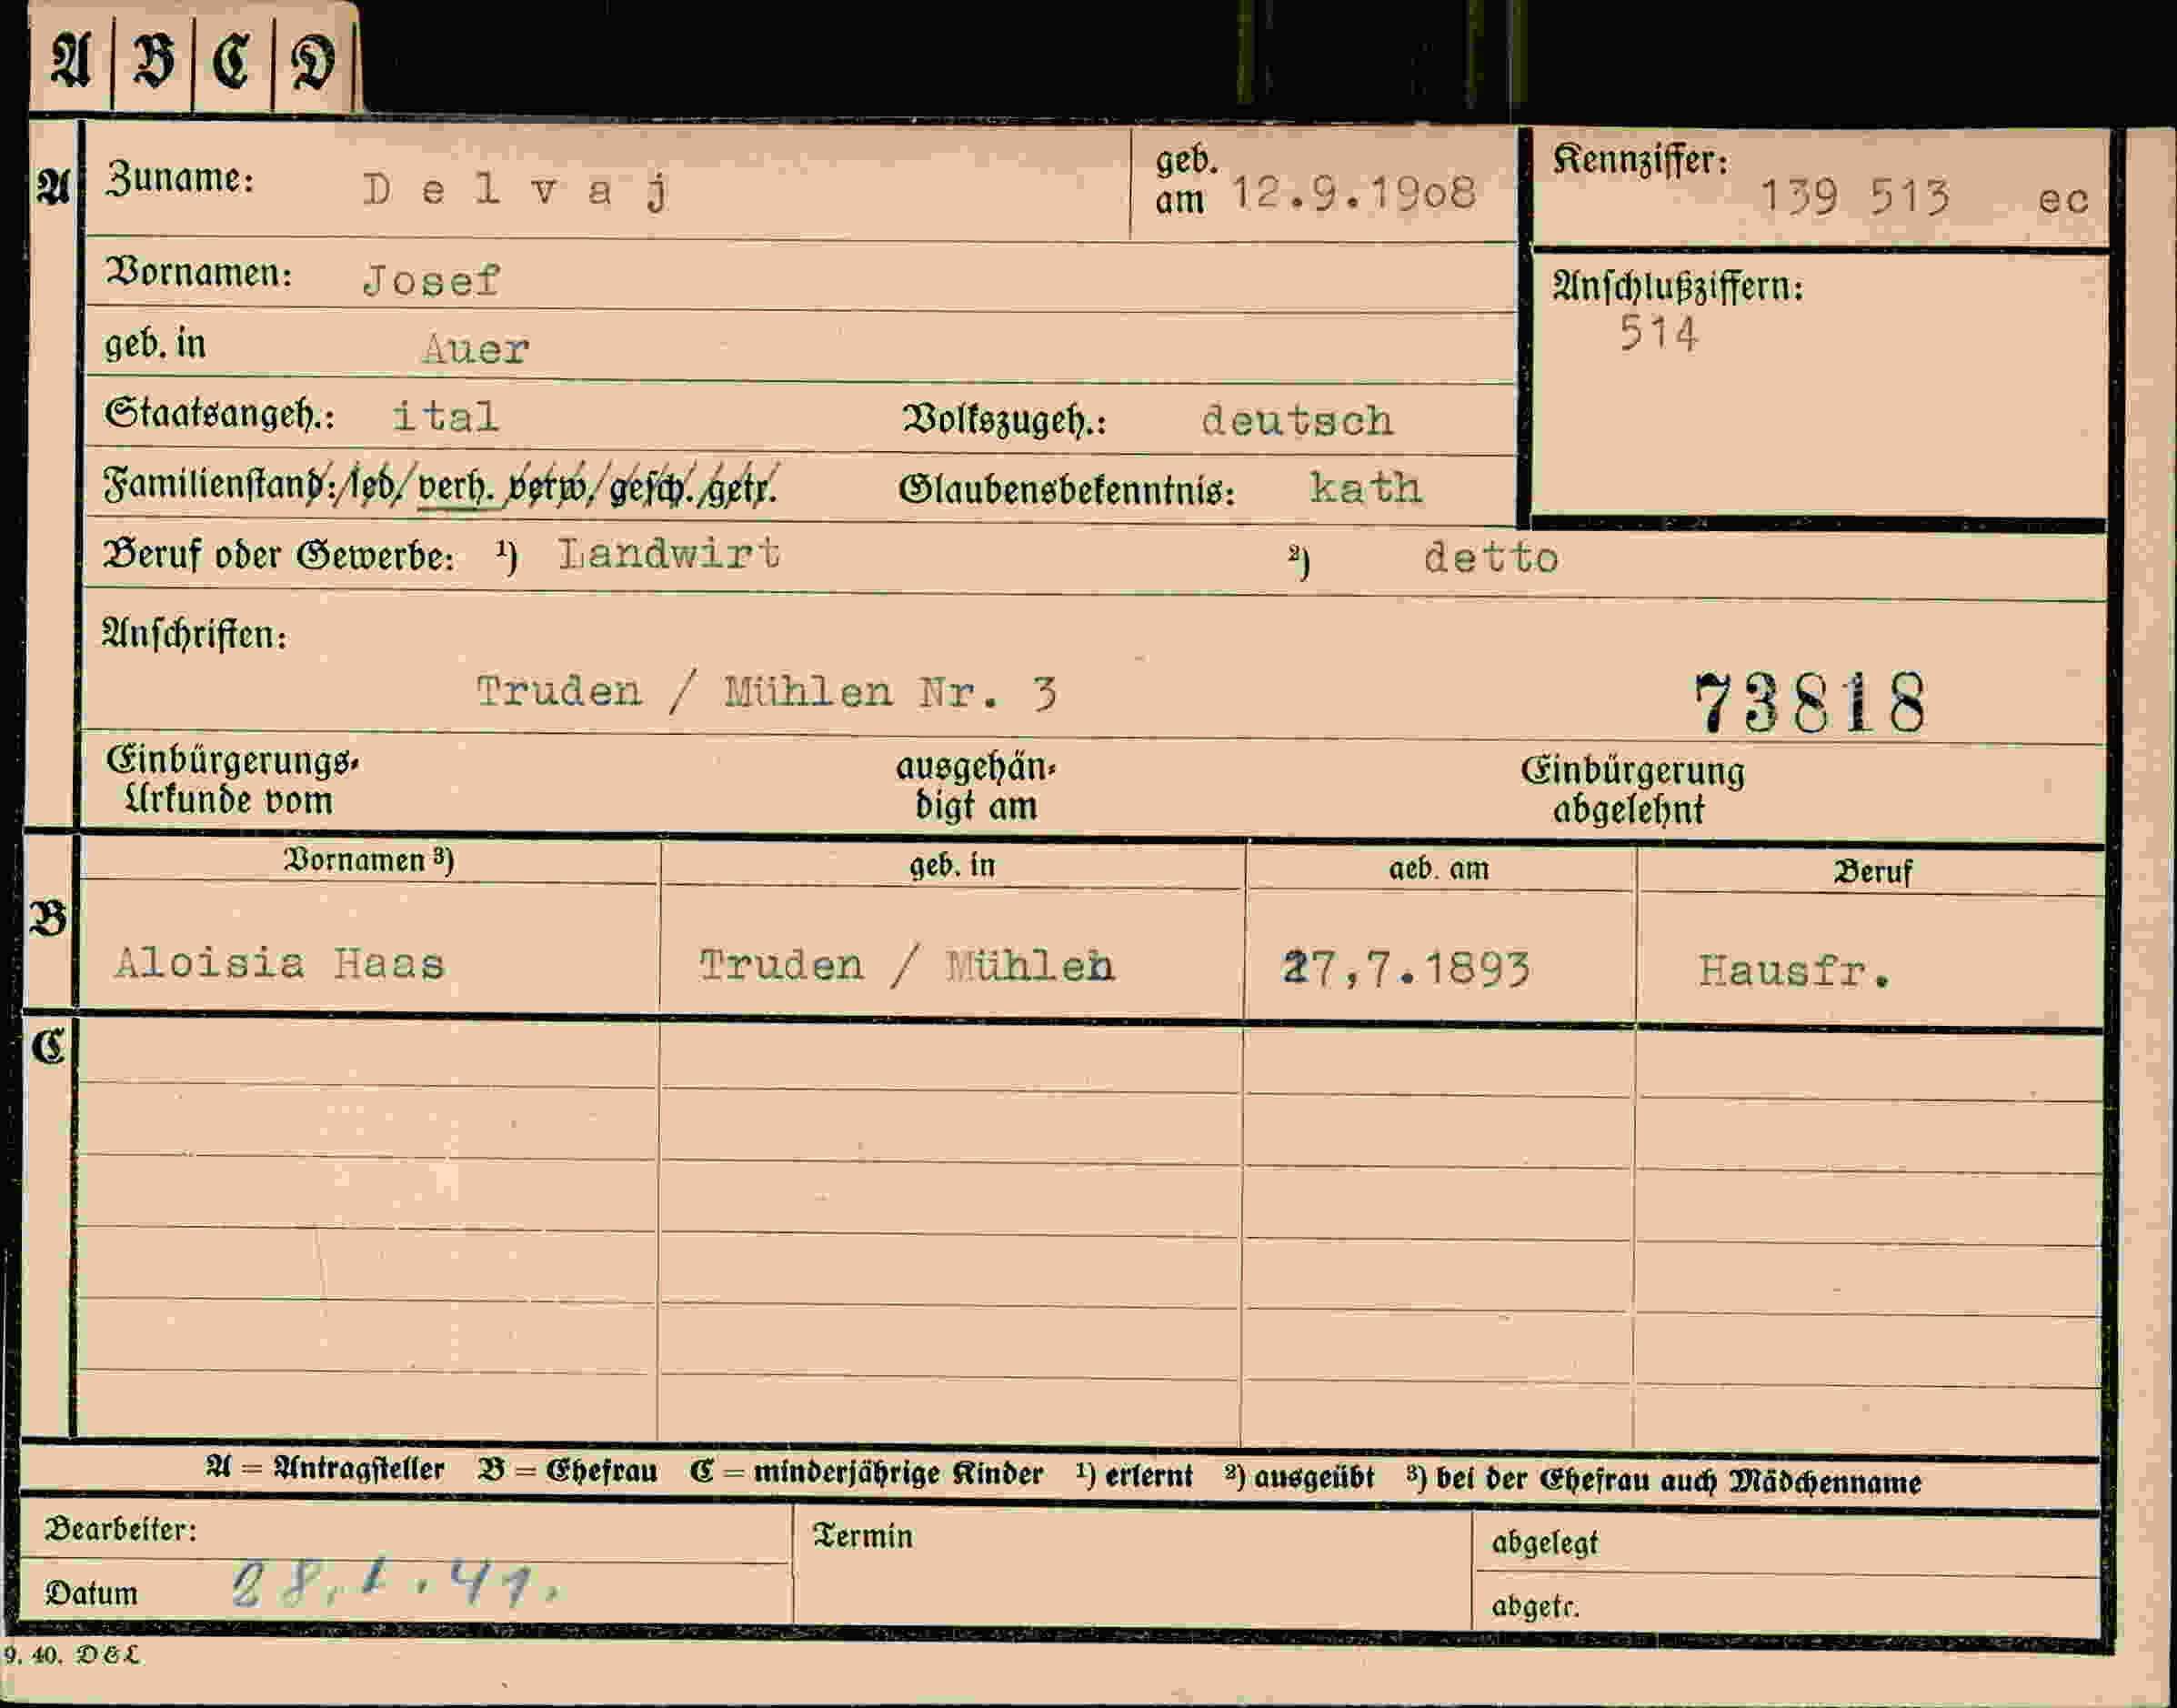 A B C D
A Zuname: Delvaj geb. am 12.9.1908 Kennziffer: 139 513 ec
Vornamen: Josef Anschlußziffern:
514
geb. in Auer
Staatsangeh.: ital Volkszugeh.: deutsch
Familienstand: led. verh. verw. gesch. getr. Glaubensbekenntnis: kath
Beruf oder Gewerbe: ¹) Landwirt ²) detto
Anschriften:
Truden / Mühlen Nr. 3 73818
Einbürgerungs-Urkunde vom ausgehändigt am Einbürgerung abgelehnt
Vornamen ³) geb. in geb. am Beruf
B Aloisia Haas Truden / Mühlen 27,7.1893 Hausfr.
C
A = Antragsteller B = Ehefrau C = minderjährige Kinder ¹) erlernt ²) ausgeübt ³) bei der Ehefrau auch Mädchenname
Bearbeiter: Termin abgelegt
Datum 28.1.41. abgetr.
9. 40. D&L